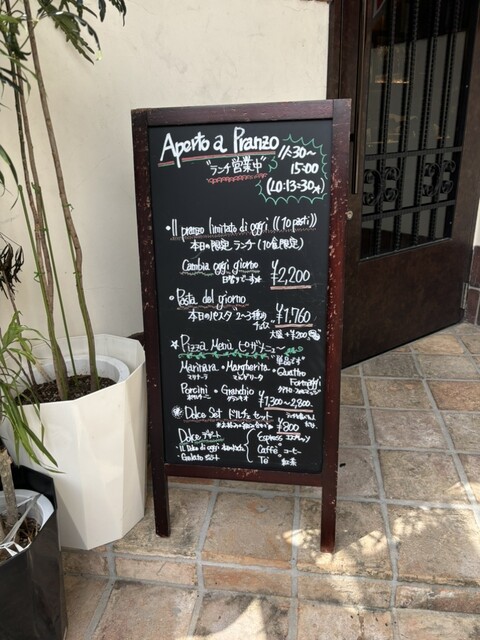 Aperto a Pranzo
"ランチ営業中"
11:30~
15:00
(LO:13:30★)
・Il pranzo limitato di oggi ((10 pasti))
本日の限定ランチ(10食限定)
Cambia oggi giorno
日替りです★
¥2,200
・Pasta del giorno
本日のパスタ 2~3種
¥1,760
大盛+¥200
☆Pizza Menù ピッツァメニュー
Marinara・Margherita・Quattro Formaggi
マリナーラ マルゲリータ
Porcini・Granchio
ポルチーニ グランキオ
¥1,300~2,800
Dolce Set ドルチェセット
¥800
Dolce デザート
・Il Dolce di oggi
・Gelato ジェラート
Espress エスプレッソ
Caffè コーヒー
Tè 紅茶